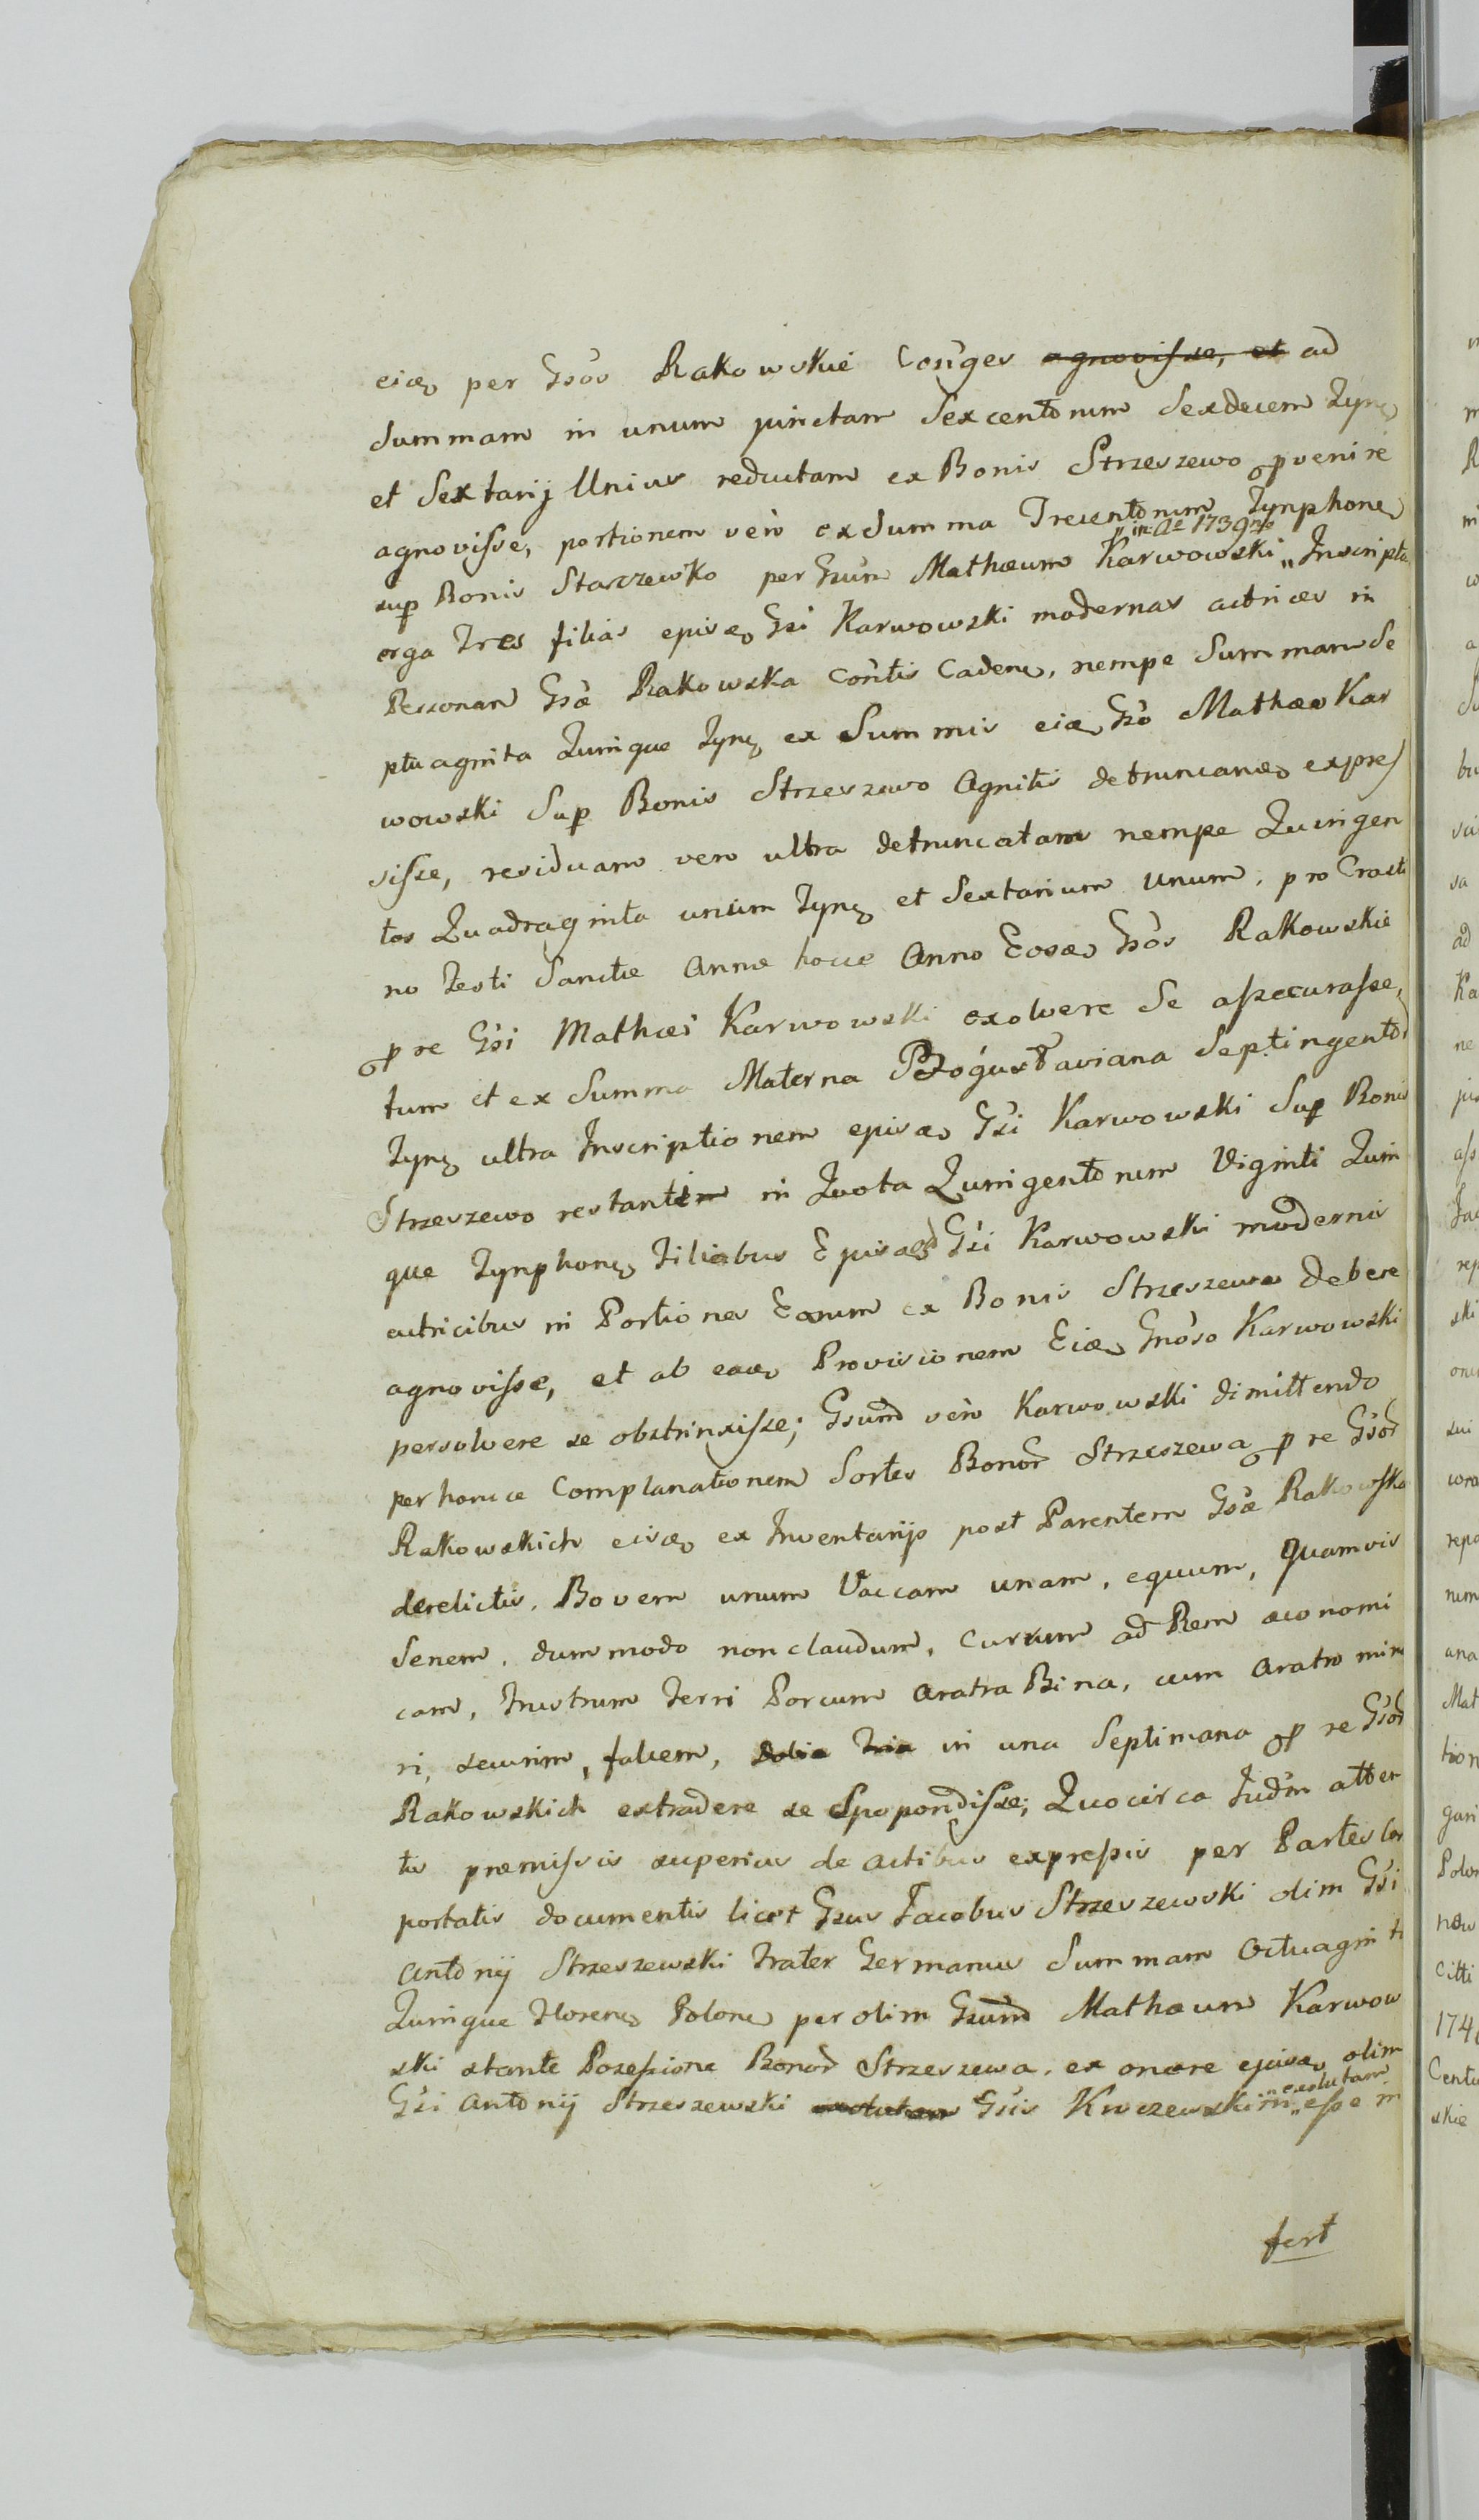 eidẽ per Gsos Rakowskie Conges agnovisse, et ad
Summam in unum junctam Sexcentorum Sexdecem Tynẽ
et Sextarij Unius reductam ex Bonis Strzeszewo p̱venire
agnovisse, portionem vero ex Summa Trecentorum Tynphonẽ
"in Aõ 1739no
sup Bonis Starzewko per Gsum Mathæum Karwowski "Inscripta
erga Tres filias ejusdẽ Gsi Karwowski modernas actrices in
Personam Gsæ Rakowska Contis Caden, nempe Summam Se
ptuaginta Quinque Tynẽ ex Summis eidẽ Gso Mathæo Kar
wowski Sup Bonis Strzeszewo Agnitis detruncandẽ expres
sisse, residuam vero ultra detruncatam nempe Quingen
tos Quadraginta unum Tynẽ et Sextarium unum, pro Crasti
no Festi Sanctæ Annæ hocce Anno Eosdẽ Gsos Rakowskie
p̱ re Gsi Mathæi Karwowski exolvere Se assecurasse,
tum et ex Summa Materna Septingento
Tynẽ ultra Inscriptionem ejusdẽ Gsi Karwowski Sup Bonis
Strzeszewo restantem in Quota Quingentorum Viginti Quin
que Tynphonẽ Filiabus Ejusdẽ Gsi Karwowski modernis
actricibus in Portiones Earum ex Bonis Strzeszewo debere
agnovisse, et ab eadẽ Provisionem Eidẽ Gnoso Karwowski
persolvere se obstrinxisse; Gsum vero Karwowski dimittendo
per hancce Complanationem Sortes Bonor Strzeszewa p̱ re Gsor
Rakowskich eisdẽ ex Inventarijs post Parentem Gsæ Rakowska
derelictis, Bovem unum Vaccam unam, equum, quamvis
Senem, dummodo non claudum, Currum ad Rem œconomi
cam, frustrum ferri Porcum aratra Bina, cum aratro mino
ri, securim, falcem, Dolia Tria in una Septimana p̱ re Gsor
Rakowskich extradere se Spopondisse; Quocirca Judm atten
tis præmissis superius de actibus expressis per Partes Com
portatis documentis licet Gsus Jacobus Strzeszewski olim Gsi
Antonij Strzeszewski Frater Germanus Summam Octuaginta
Quinque Florenẽ Polonẽ per olim Gsum Mathæum Karwow
ski stante Possessione Bonor Strzeszewa, ex onere ejusdẽ olim
"exolutam
Gsi Antonij Strzeszewski exolutam Gsis "esse in
fert